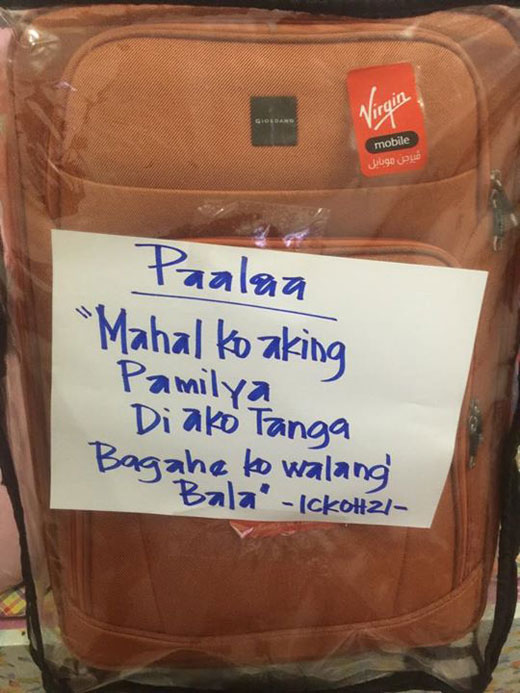 GIORDANO
Virgin
mobile
ڤيرجن موبايل
Paalaa
"Mahal ko aking
Pamilya
Di ako Tanga
Bagahe ko walang
Bala" -ICKOHZI-